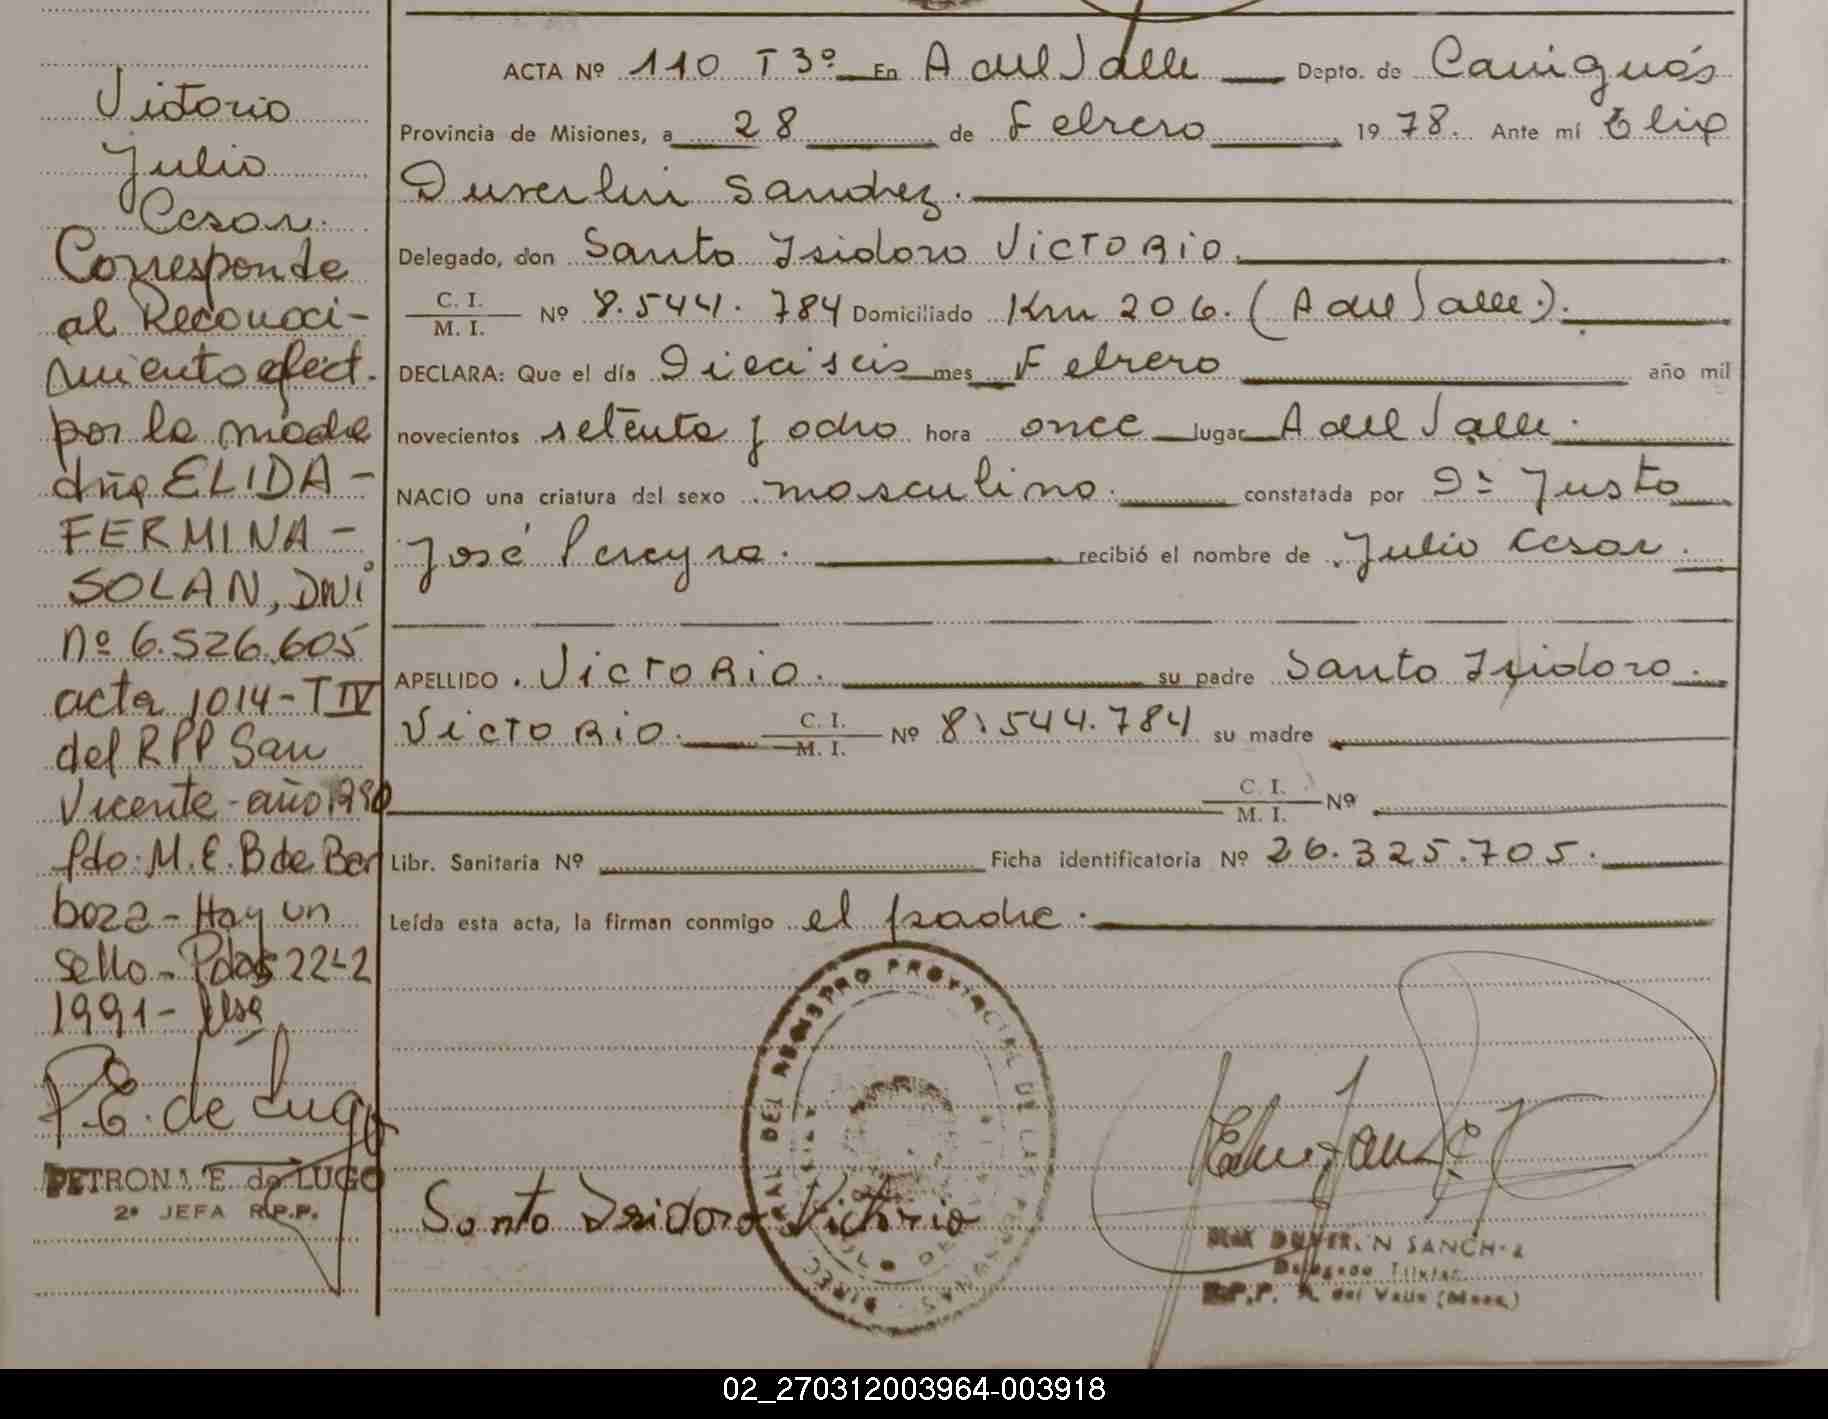 Victorio
Julio
Cesar.
Corresponde
al Reconoci-
miento efect.
por la madre
dña ELIDA-
FERMINA-
SOLAN, DNI
nº 6.526.605
acta 1014-T IV
del RPP San
Vicente-año 1990
fdo: M.E.B de Bar
boza-Hay un
sello-Pdas 22-2
1991-
P.E. de Lugo
PETRONA E de LUGO
2ª JEFA R.P.P.
ACTA Nº 110 T 3º En A del Valle Depto. de Cainguás
Provincia de Misiones, a 28 de Febrero 1978. Ante mí Elix
Duverlin Sanchez.
Delegado, don Santo Isidoro VICTORIO.
C. I.
M. I. Nº 8.544.784 Domiciliado Km 206. (A del Valle).
DECLARA: Que el día Dieciseis mes Febrero año mil
novecientos setenta y ocho hora once lugar A del Valle.
NACIO una criatura del sexo masculino. constatada por Dº Justo
José Pereyra. recibió el nombre de Julio Cesar.
APELLIDO VICTORIO. su padre Santo Isidoro.
VICTORIO. C. I.
M. I. Nº 8.544.784 su madre
C. I.
M. I. Nº
Libr. Sanitaria Nº Ficha identificatoria Nº 26.325.705.
Leída esta acta, la firman conmigo el padre.
DEL REGISTRO PROVINCIAL DE LAS PERSONAS
Santo Isidoro Victorio
DUVERLIN SANCHEZ
Delegado Titular
R.P.P. A. del Valle (Mnes.)
02_270312003964-003918